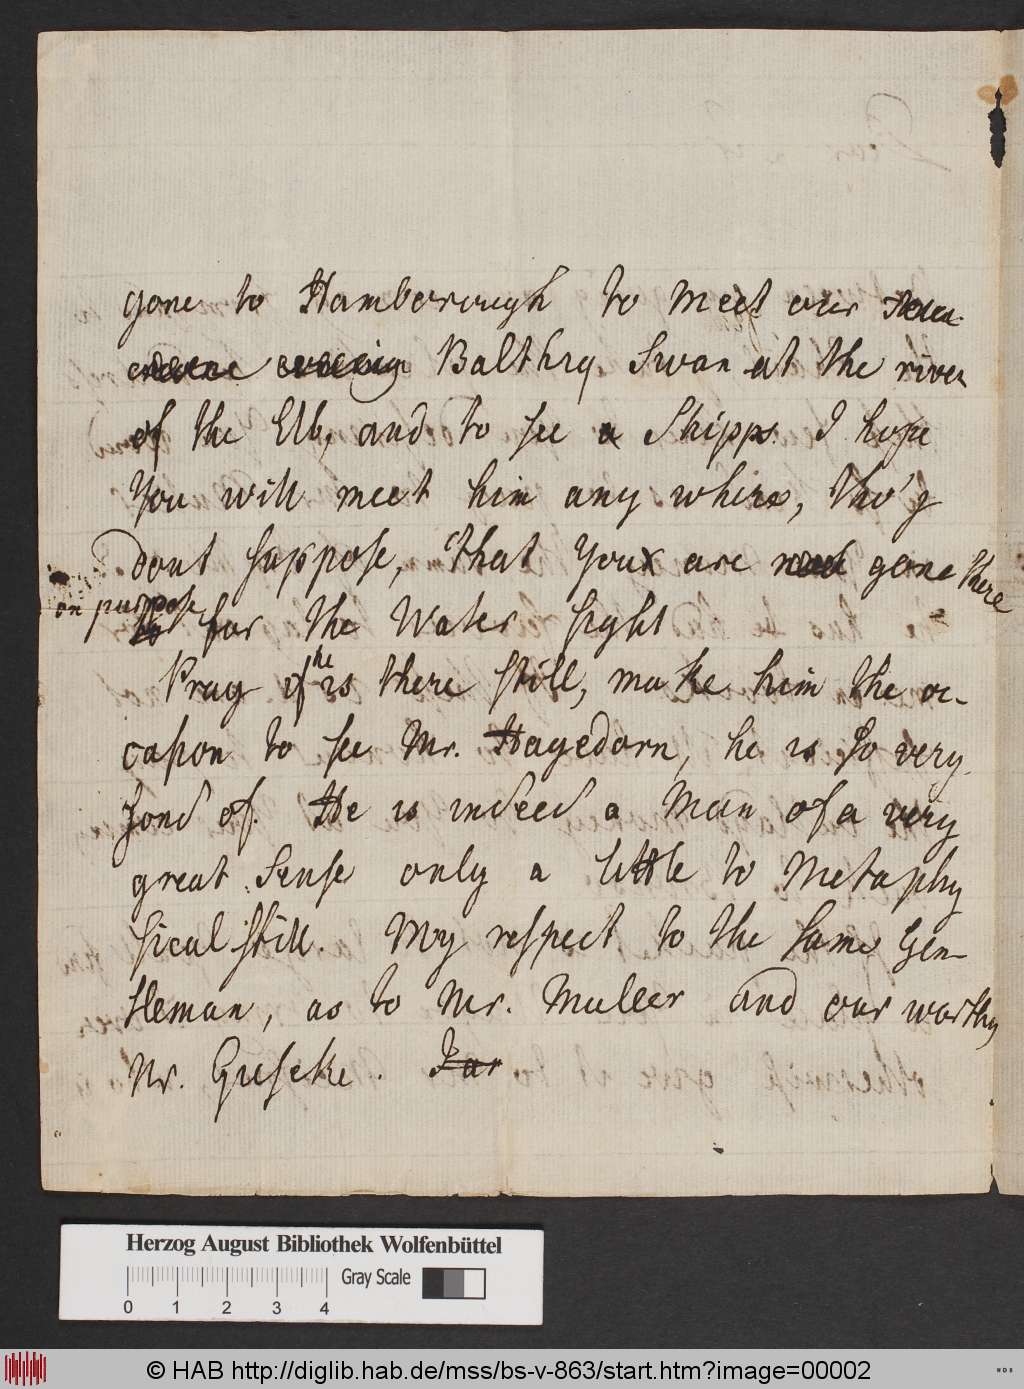 gone to Hamborough to meet our
Balthzy Swan at the river
of the Elb, and to see a Shipps. I hope
You will meet him any where, tho' j
dont suppose, that You are gone there
on purpose for the Water sight
Pray if he is there still, make him the oc-
casion to see Mr. Hagedorn, he is so very
fond of. He is indeed a Man of a very
great Sense only a little to Metaphy
sical still. My respect to the same Gen-
tleman, as to Mr. Muller and our worthy
Mr. Giseke. For
Herzog August Bibliothek Wolfenbüttel
Gray Scale
0 1 2 3 4
© HAB http://diglib.hab.de/mss/bs-v-863/start.htm?image=00002